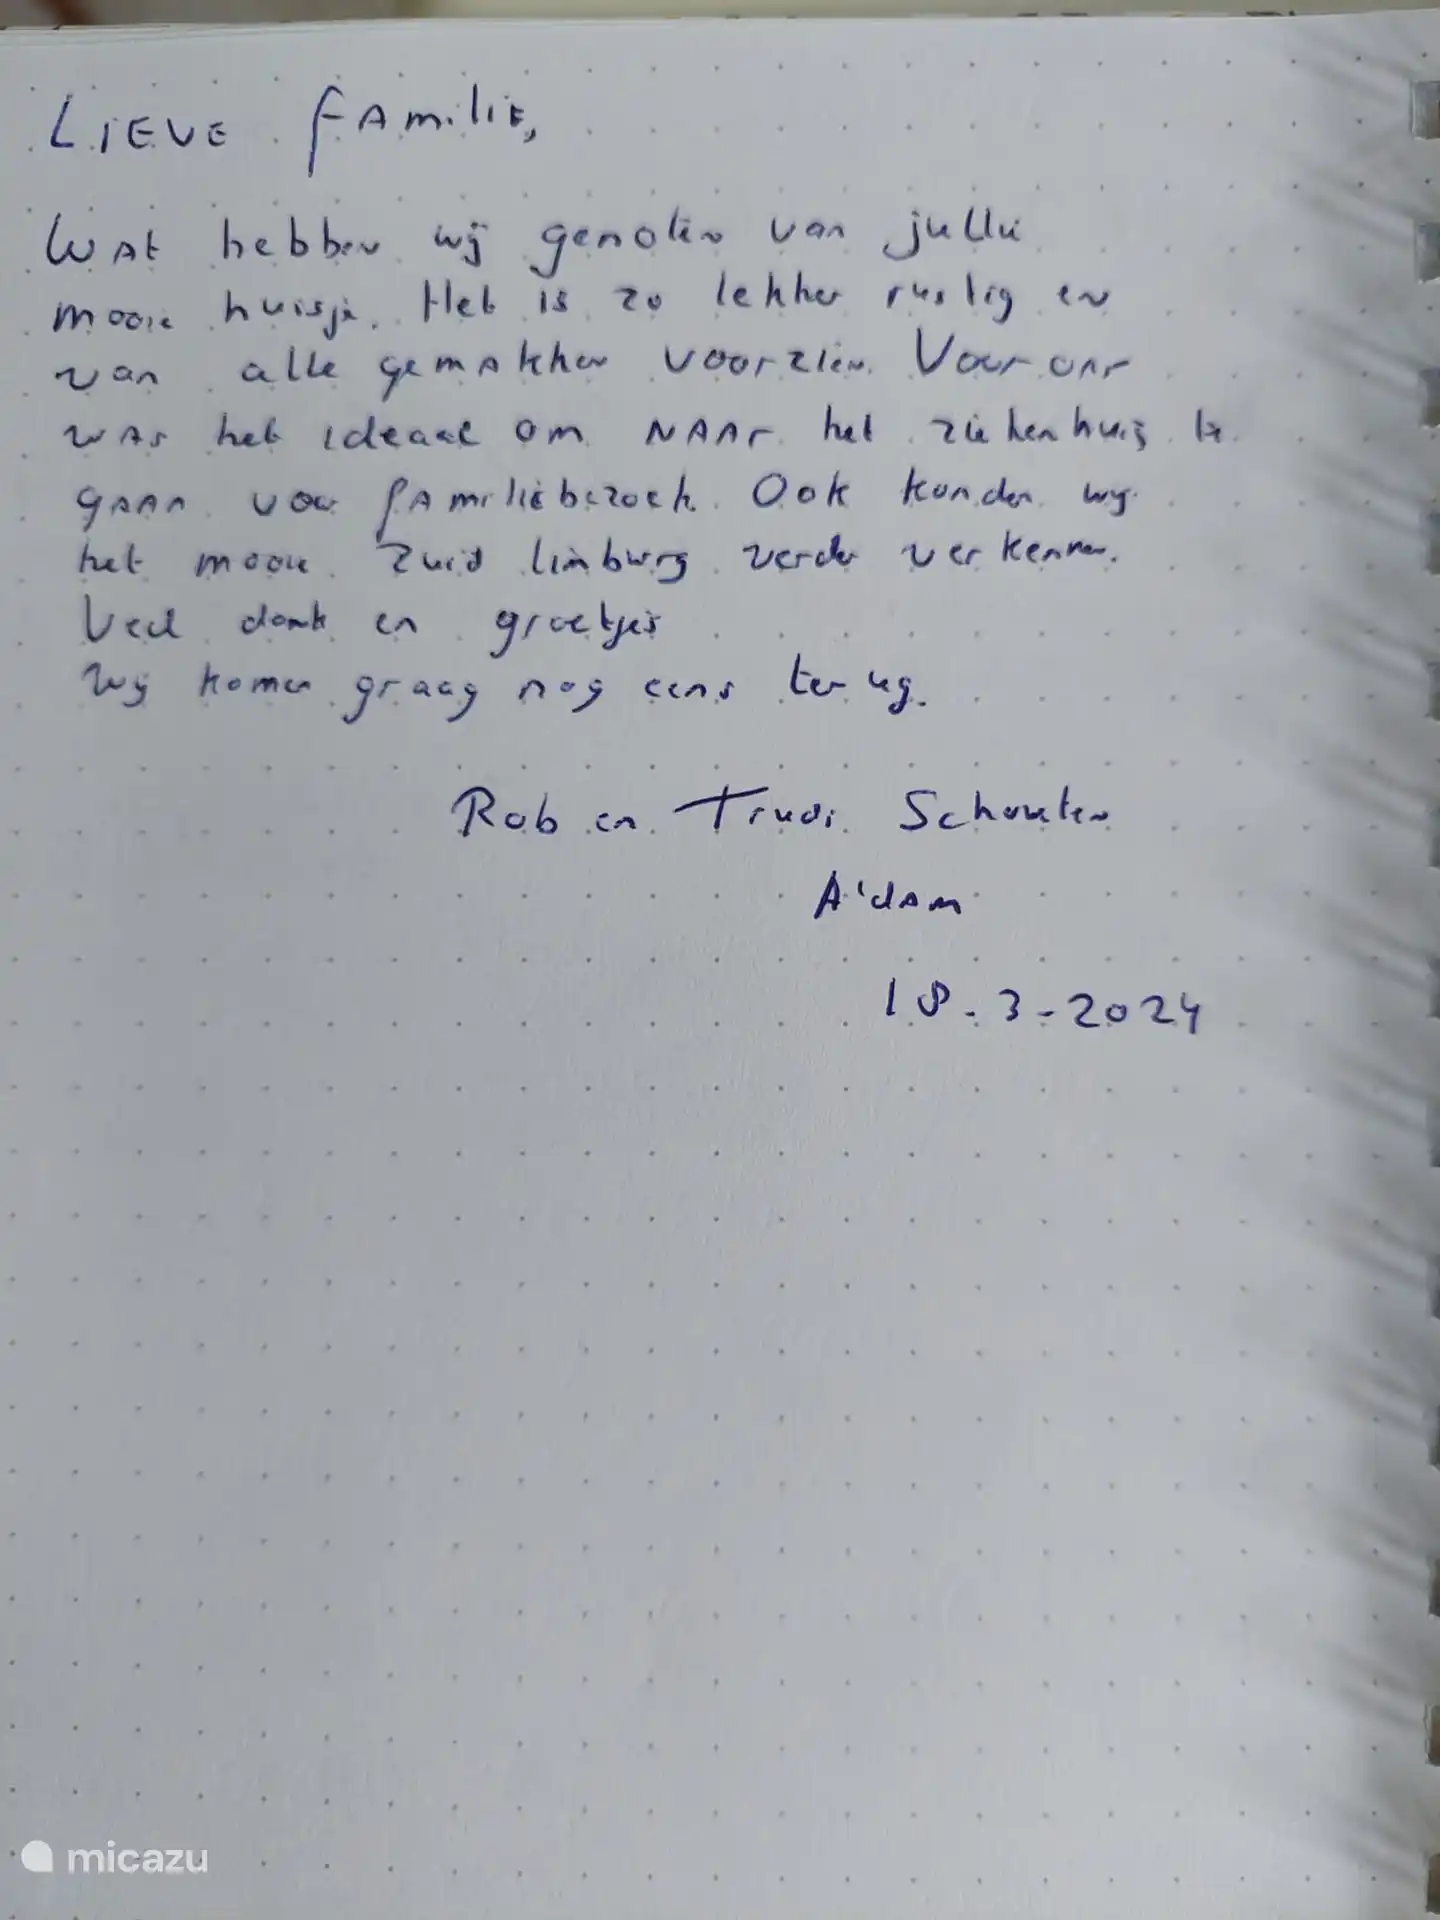 Lieve familie,
Wat hebben wij genoten van jullie
mooie huisje. Het is zo lekker rustig en
van alle gemakken voorzien. Voor ons
was het ideaal om naar het ziekenhuis te
gaan voor familiebezoek. Ook konden wij
het mooie Zuid limburg verder verkennen.
Veel dank en groetjes
Wij komen graag nog eens terug.
Rob en Trudi Schouten
A'dam
18-3-2024
micazu